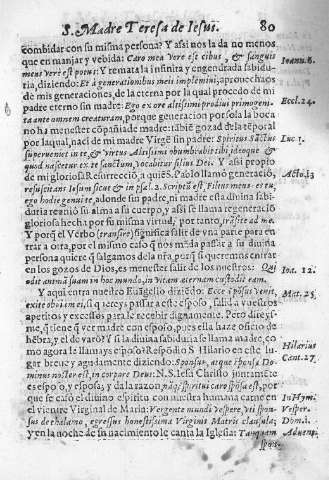 S. Madre Teresa de Iesus. 80
combidar con su misma persona? Y assi nos la da no menos
que en manjar y vebida: Caro mea verè est cibus, & sanguis
meus verè est potus: Y remata la infinita y engendrada sabidu-
ria, diziendo: Et à generationibus meis implemini; aprouechaos
de mis generaciones, de la eterna por la qual procedo de mi
padre eterno sin madre: Ego ex ore altissimi prodiui primogeni-
ta ante omnem creaturam, porque generacion por sola la boca
no ha menester cõpañia de madre: tãbiẽ gozad de la tẽporal
por la qual, naci de mi madre Virgẽ sin padre: Spiritus Sãctus
superueniet in te, & virtus Altissimi obumbrabit tibi ideoque &
quod nascetur ex te sanctum, vocabitur filius Dei. Y assi propio
de mi gloriosa Resurrecciõ, a quiẽ S. Pablo llamò generaciõ,
resuscitans Iesum sicut & in psal. 2. scriptũ est, Filius meus es tu,
ego hodie genui te, adonde sin padre, ni madre esta diuina sabi-
duria reunio su alma a su cuerpo, y assi se llama regeneraciõ
gloriosa hecha por su misma virtud; por tanto, trãsite ad me.
Y porq̃ el Verbo (transire) significa salir de vna parte para en
trar a otra, por el mismo caso q̃ nos mãda passar a su diuina
persona quiere q̃ salgamos de la nr̃a, porq̃ si queremos entrar
en los gozos de Dios, es menester salir de los nuestros: Qui
odit animã suam in hoc mundo, in vitam æternam custodit eam.
Y aqui entra nuestro Euãgelio diziẽdo: Ecce spõsus venit,
exite obuiam ei, si q̃reys passar a este esposo, salid a vuestros
apetitos y excessos para le recebir dignamente. Pero direys-
me, q̃ tiene q̃ ver madre con esposo, pues ella haze oficio de
hẽbra, y el de varõ? Y si la diuina sabiduria se llama madre, co
mo agora le llamays esposo? Respõdio S. Hilario en este lu-
gar breue y agudamente diziendo: Sponsus, atque sponsa Do-
minus noster est, in corpore Deus: N. S. Iesu Christo juntamẽte
es esposo, y esposa, y da la razon nãq; spiritui caro spõsa est, por
que se casò el diuino espiritu con nuestra humana carne en
el vientre Virginal de Maria: Vergente mundi vespere, vti spon-
sus de thalamo, egressus honestissima Virginis Matris clausula;
y en la noche de su nacimiento le canta la Iglesia: Tamquam
spon-
Ioann. 6.
Eccl. 24.
Luc. 1.
Acto. 13
Ioã. 12.
Mat. 25.
Hilarius
Cant. 27.
In Hym.
Vesper.
Dom. 1.
Aduent.